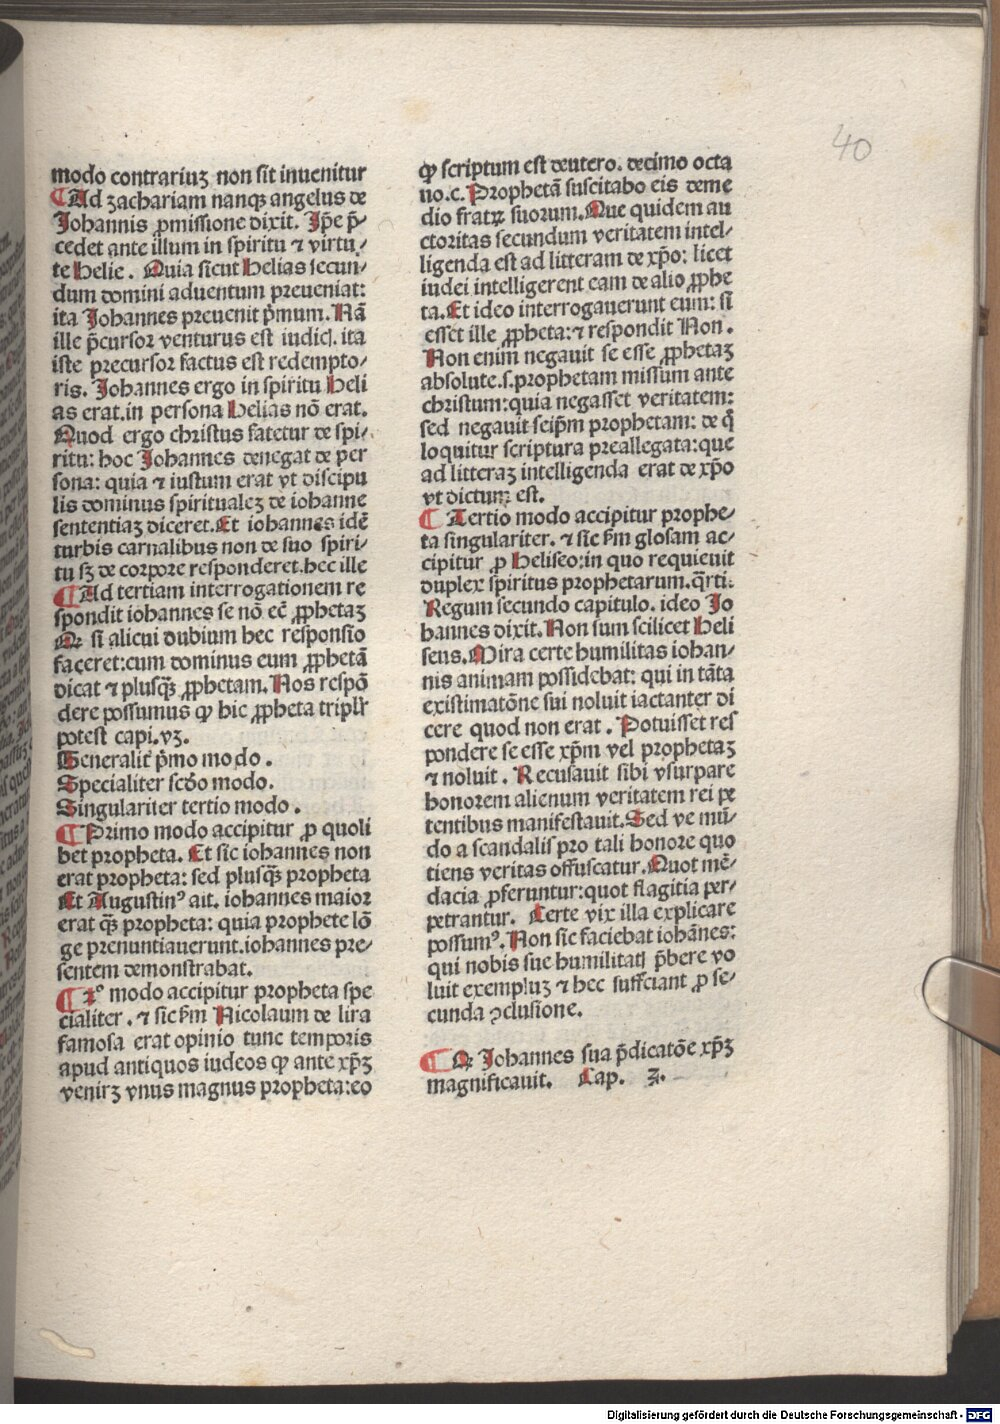 modo contrariuʒ non sit inuenitur
Ad ʒachariam nanqꝫ angelus de
Johannis ꝓmissione dixit. Ip̄e p̄⸗
cedet ante illum in spiritu ⁊ virtu⸗
te Helie. Quia sicut Helias secun⸗
dum domini aduentum preueniat:
ita Johannes preuenit p̄mum. Nā
ille p̄cursor venturus est iudicꝭ. ita
iste precursor factus est redempto⸗
ris. Johannes ergo in spiritu Heli
as erat. in persona Helias nō erat.
Quod ergo christus fatetur de spi⸗
ritu: hoc Johannes denegat de per
sona: quia ⁊ iustum erat vt discipu
lis dominus spiritualeʒ de iohanne
sententiaʒ diceret. Et iohannes idē
turbis carnalibus non de suo spiri⸗
tu sʒ de corpore responderet. hec ille
Ad tertiam interrogationem re
spondit iohannes se nō eē ꝓphetaʒ
Qꝛ si alicui dubium hec responsio
faceret: cum dominus eum ꝓphetā
dicat ⁊ plusqꝫ̄ ꝓphetam. Nos respō
dere possumus ꝙ hic ꝓpheta triplr̄
potest capi. vʒ.
Generalit̄ p̄mo modo.
Specialiter scd̄o modo.
Singulariter tertio modo.
Primo modo accipitur ꝓ quoli
bet propheta. Et sic iohannes non
erat propheta: sed plusqꝫ̄ propheta
Et Augustinꝰ ait. iohannes maior
erat qꝫ̄ propheta: quia prophete lō
ge prenuntiauerunt. iohannes pre⸗
sentem demonstrabat.
2º modo accipitur propheta spe
cialiter. ⁊ sic fm̄ Nicolaum de lira
famosa erat opinio tunc temporis
apud antiquos iudeos ꝙ ante xp̄ʒ
venirʒ vnus magnus propheta: eo
ꝙ scriptum est deutero. decimo octa
uo. c. Prophetā suscitabo eis deme
dio fratꝝ suorum. Que quidem au
ctoritas secundum veritatem intel⸗
ligenda est ad litteram de xp̄o: licet
iudei intelligerent eam de alio ꝓphe
ta. Et ideo interrogauerunt eum: si
esset ille ꝓpheta: ⁊ respondit Non.
Non enim negauit se esse ꝓphetaʒ
absolute. s. prophetam missum ante
christum: quia negasset veritatem:
sed negauit seip̄m prophetam: de q̄
loquitur scriptura preallegata: que
ad litteraʒ intelligenda erat de xp̄o
vt dictum est.
Tertio modo accipitur prophe⸗
ta singulariter. ⁊ sic fm̄ glosam ac⸗
cipitur ꝓ Heliseo: in quo requieuit
duplex spiritus prophetarum. q̄rti.
Regum secundo capitulo. ideo Jo
hannes dixit. Non sum scilicet Heli
seus. Mira certe humilitas iohan⸗
nis animam possidebat: qui in tāta
existimatōne sui noluit iactanter di
cere quod non erat. Potuisset res
pondere se esse xp̄m vel prophetaʒ
⁊ noluit. Recusauit sibi vsurpare
honorem alienum veritatem rei pe
tentibus manifestauit. Sed ve mū⸗
do a scandalis pro tali honore quo
tiens veritas offuscatur. Quot mē⸗
dacia ꝓferuntur: quot flagitia per⸗
petrantur. Certe vix illa explicare
possumꝰ. Non sic faciebat iohānes:
qui nobis sue humilitatꝭ p̄bere vo
luit exempluʒ ⁊ hec sufficiant ꝓ se⸗
cunda ꝯclusione.
Qꝛ Johannes sua p̄dicatōe xp̄ʒ
magnificauit. Cap. 3.
40
Digitalisierung gefördert durch die Deutsche Forschungsgemeinschaft - DFG